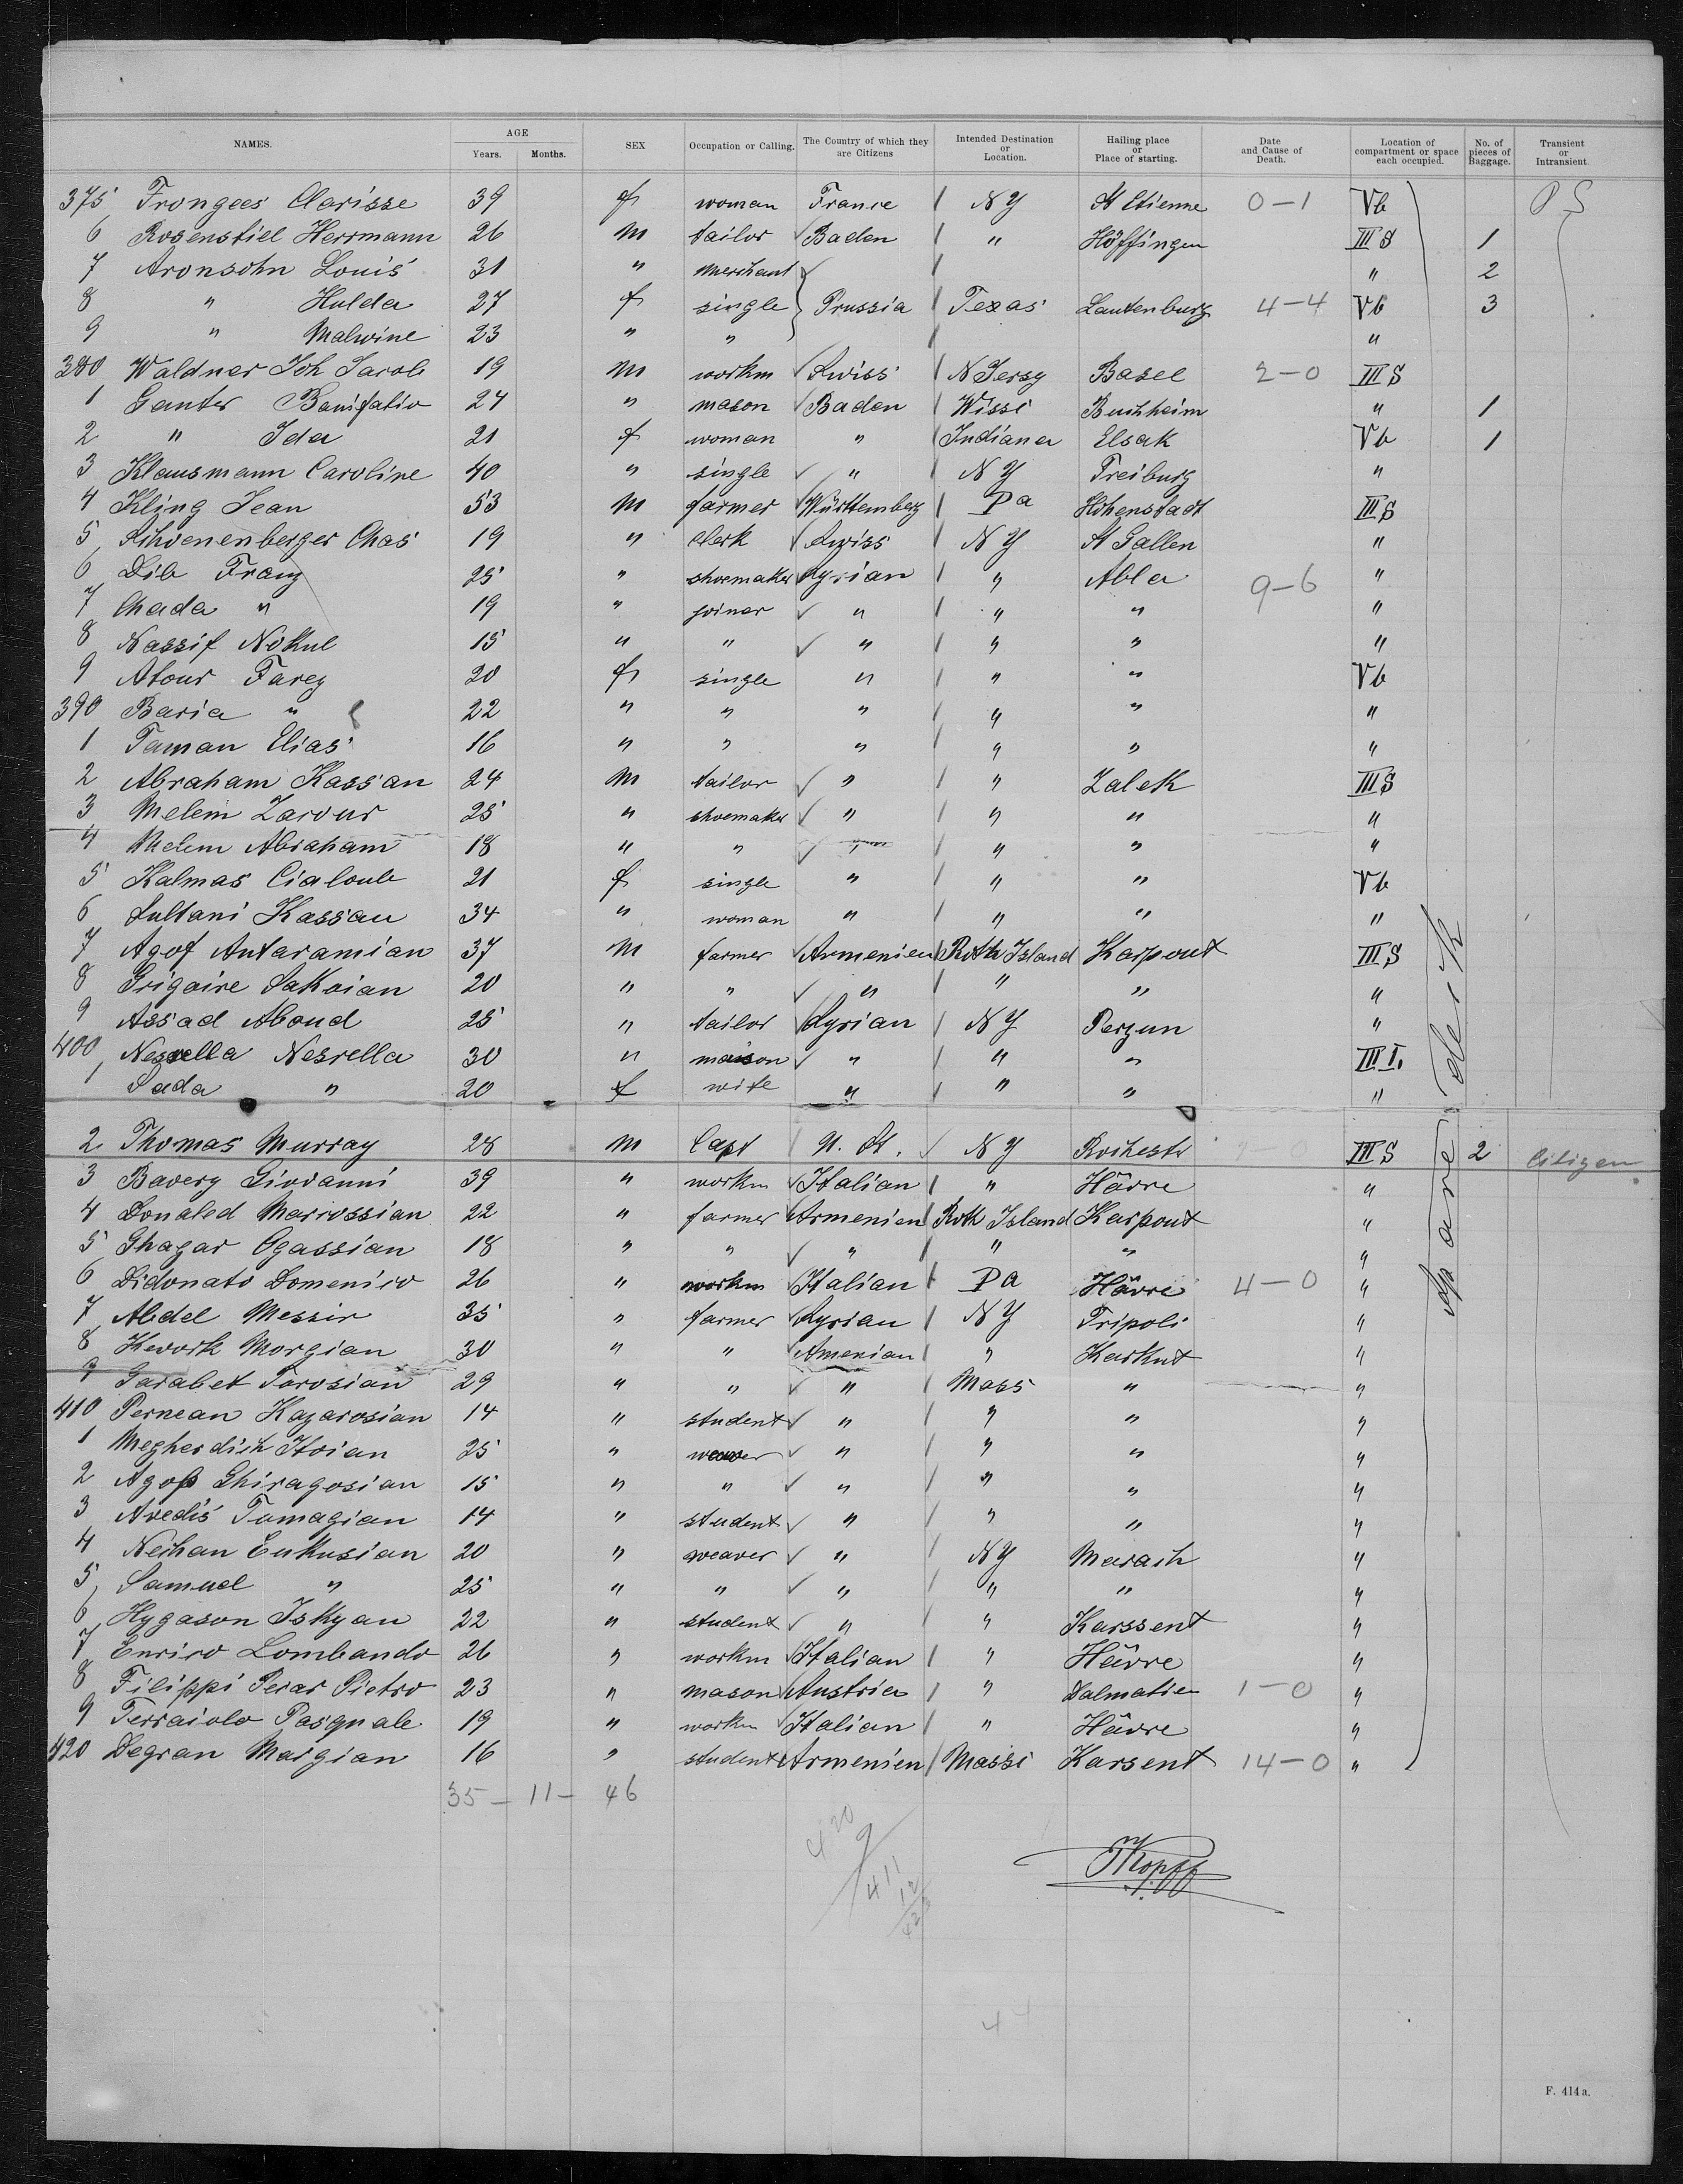 NAMES. AGE Years. Months. SEX Occupation or Calling. The Country of which they are Citizens Intended Destination or Location. Hailing place or Place of starting. Date and Cause of Death. Location of compartment or space each occupied. No. of pieces of Baggage. Transient or Intransient.
375 Frongees Clarisse 39 f woman France NY St Etienne 0-1 Vb P S
6 Rosenstiel Herrmann 26 m tailor Baden " Höffingen III S 1
7 Aronsohn Louis 31 " merchant " 2
8 " Hulda 27 f single Prussia Texas Lautenburg 4-4 Vb 3
9 " Malwine 23 " " "
380 Waldner Joh Jacob 19 m workm Swiss N Jersy Basel 2-0 III S
1 Ganter Bonifatio 24 " mason Baden Wissi Buchheim " 1
2 " Ida 21 f woman " Indiana Elsak Vb 1
3 Klausmann Caroline 40 " single " NY Freiburg "
4 Kling Jean 53 m farmer Württemberg Pa Hohenstadt III S
5 Schoenenberger Chas 19 " clerk Swiss NY St Gallen "
6 Dib Franz 25 " shoemaker Syrian " Abla 9-6 "
7 Chada " 19 " joiner " " " "
8 Nassif Nokul 15 " " " " " "
9 Atour Farez 20 f single " " " Vb
390 Baria " 22 " " " " " "
1 Taman Elias 16 " " " " " "
2 Abraham Kassan 24 m tailor " " Zalek III S
3 Melem Zarour 25 " shoemaker " " " "
4 Melem Abraham 18 " " " " " "
5 Kalmas Cialoub 21 f single " " " Vb
6 Sultani Kassan 34 " woman " " " "
7 Agof Antaramian 37 m farmer Armenien Roth Island Karpout III S
8 Grigoire Sakoian 20 " " " " " "
9 Assad Aboud 25 " tailor Syrian NY Perzun "
400 Nesrella Nesrella 30 " maison " " " III I.
1 Sada " 20 f wife " " " "
2 Thomas Murray 28 m Capt U. St. NY Rochestr III S 2 Citizen
3 Bavery Giovanni 39 " workm Italian " Hâvre "
4 Donaled Marrossian 22 " farmer Armenien Roth Island Karpout "
5 Ghazar Ogassian 18 " " " " " "
6 Didonato Domenico 26 " workm Italian Pa Hâvre 4-0 "
7 Abdel Messir 35 " farmer Syrian NY Tripoli "
8 Kework Morgian 30 " " Amenian " Karkut "
9 Garabet Torosian 29 " " " Mass " "
410 Pernean Kazarosian 14 " student " " " "
1 Megherdich Itoian 25 " weaver " " " "
2 Agop Ghiragosian 15 " " " " " "
3 Avedis Tomagian 14 " student " " " "
4 Neihan Eukusian 20 " weaver " NY Marash "
5 Samuel " 25 " " " " " "
6 Hygason Iskyan 22 " student " " Karssent "
7 Enrico Lombando 26 " workm Italian " Hâvre "
8 Filippi Perar Pietro 23 " mason Austria " Dalmatie 1-0 "
9 Terraiolo Pasquale 19 " workm Italian " Hâvre "
420 Degran Margian 16 " student Armenien Massi Karsent 14-0 "
35 - 11 - 46
420
9
411
12
Kopff
44
F. 414 a.